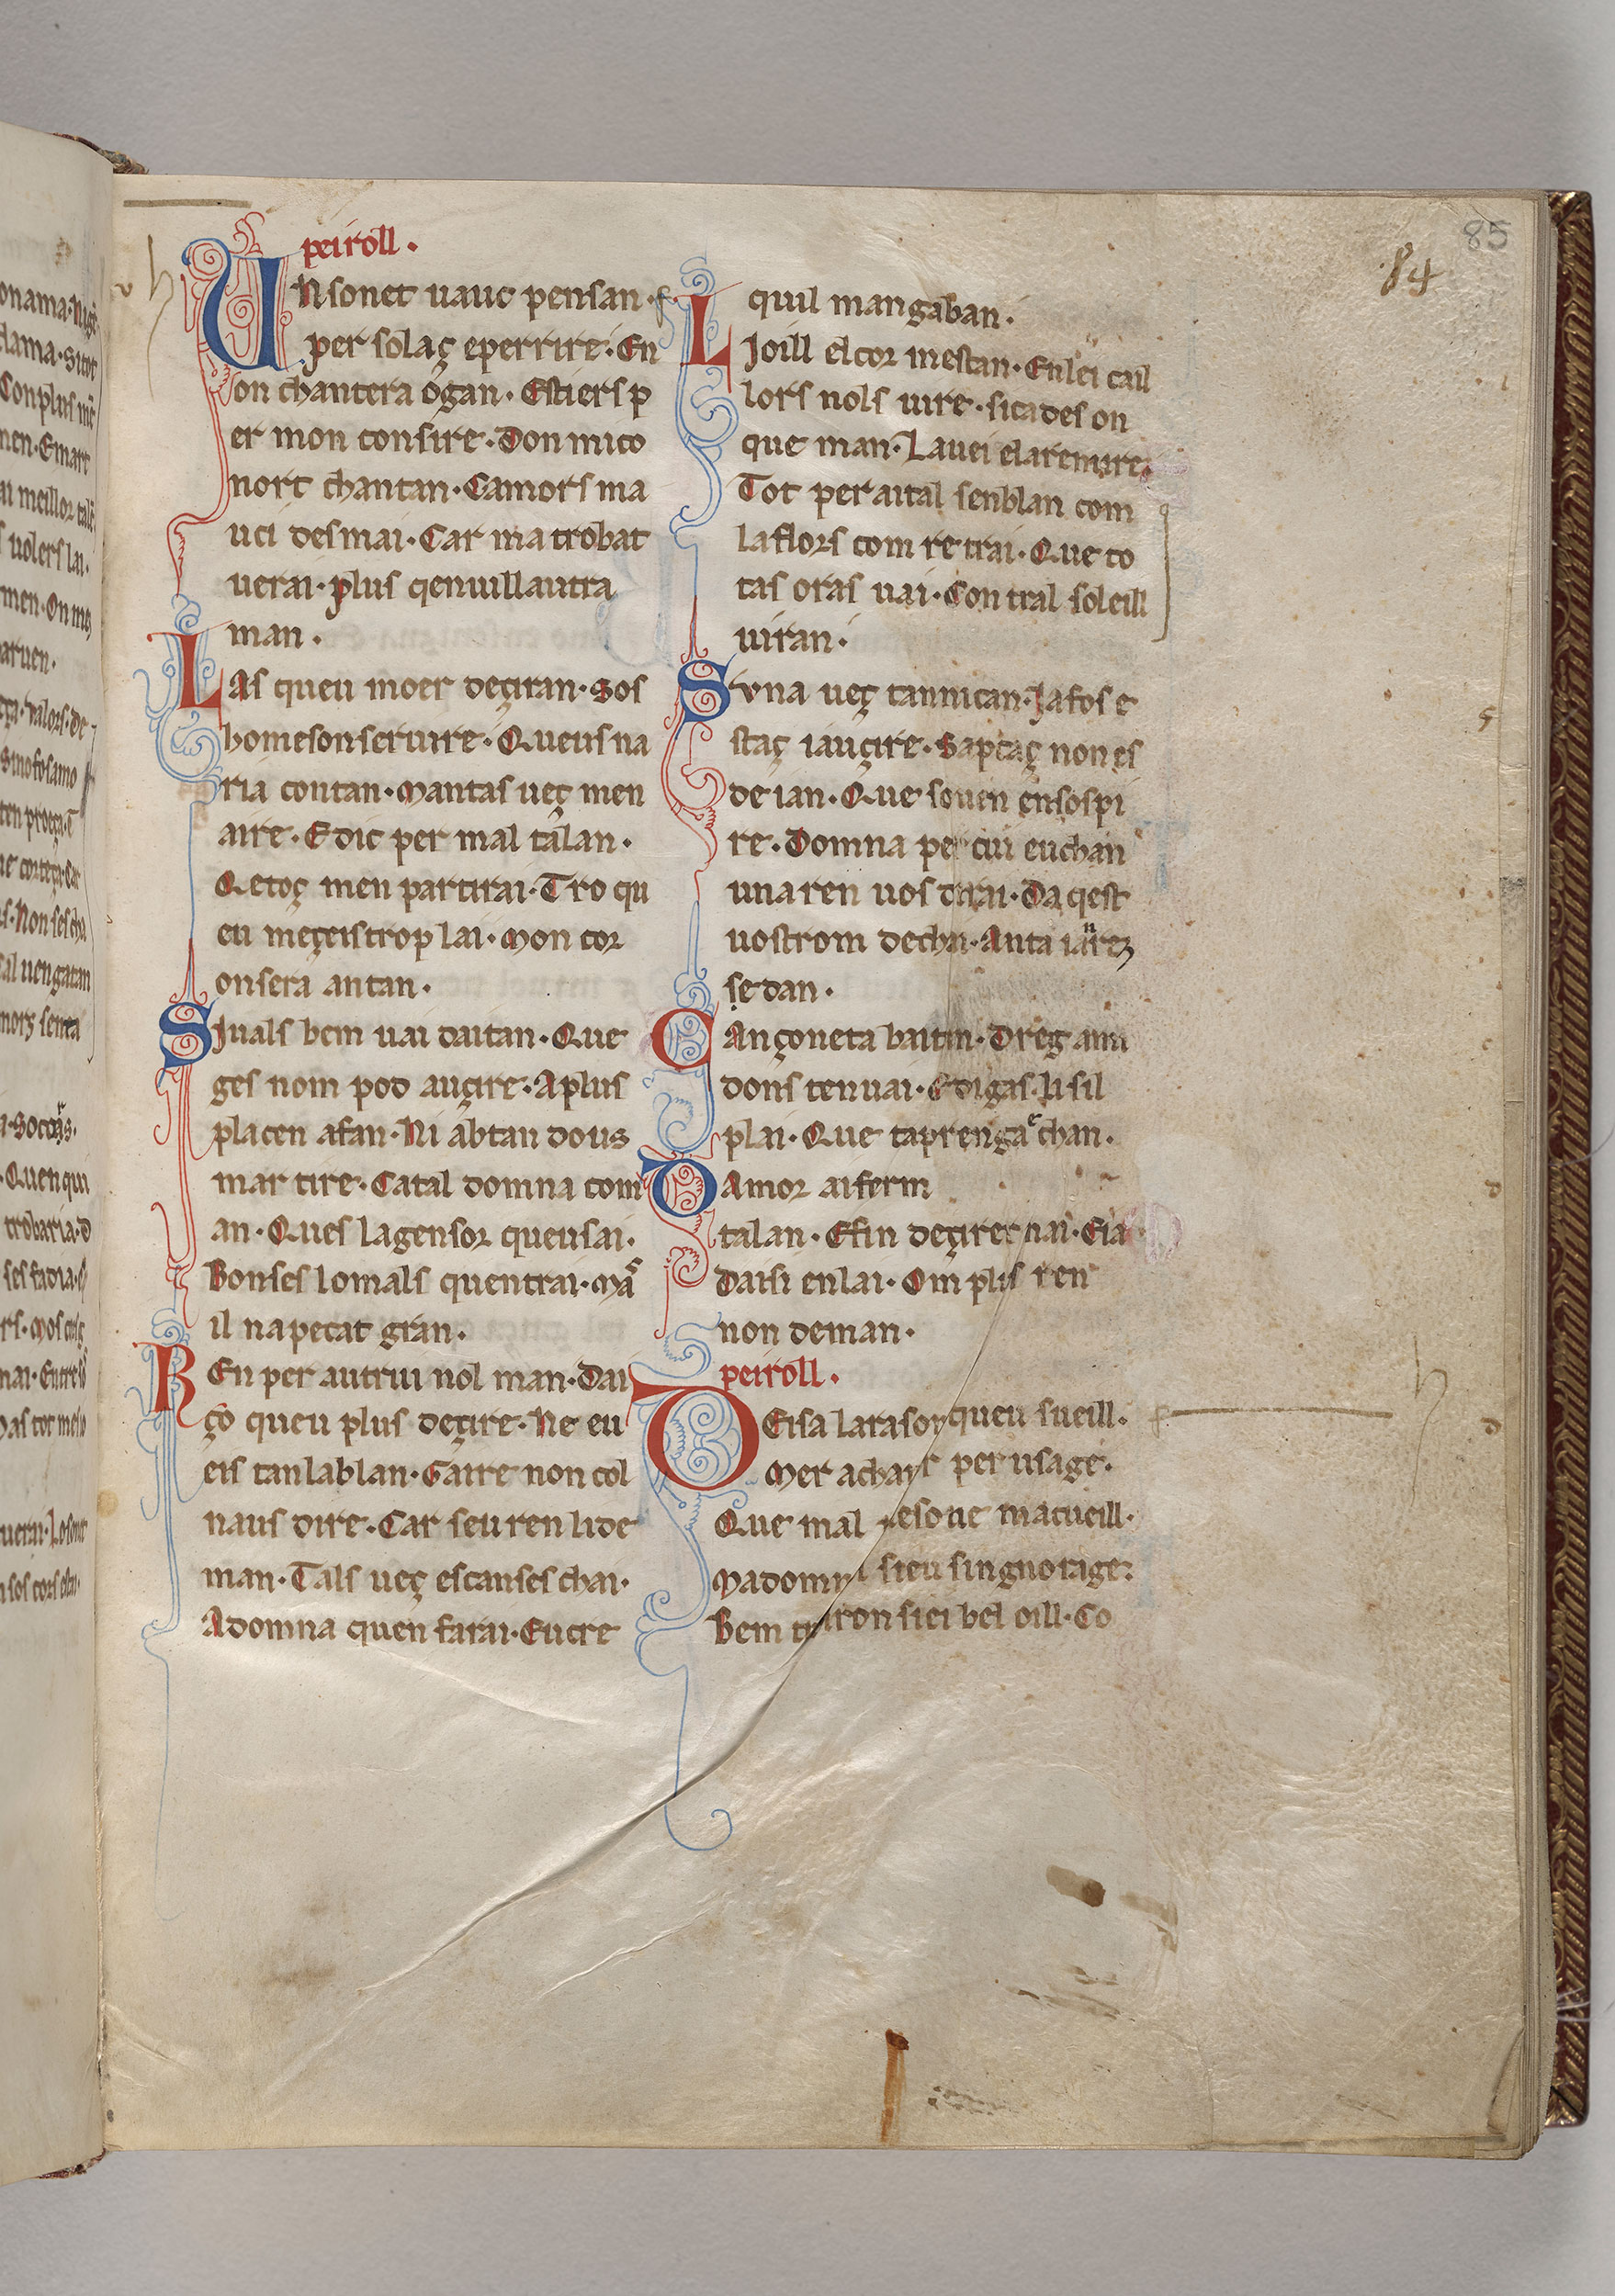 peiroll·
UN sonet uauc pensan·
per solaç eperrire· En
on chantera ogan· Estiers p
er mon consire· Don mico
nort chantan· Camors ma
uci desmai· Car ma trobat
uerai· plus qenuillautra
man·
LAs queu moer deçiran· Sos
homeson seruire· Queus na
ria contan· Mantas ueç men
aire· E dic per mal talan·
Qetoç men partirai· Tro qu
eu meçeis trop lai· Mon cor
onsera antan·
Siuals bem uai daitan· Que
ges nom pod auçire· A plus
placen afan· Ni abtan dous
martire· Catal domna com
an· Ques lagensor queu sai·
Bonses lomals quentrai· Mas
il napecat gran·
REn per autrui nol man· Dai
ço queu plus deçire· Ne eu
eis tan lablan· Gaire non col
naus dire· Car seu ren lide
man· Tals ueç escanses chai·
A domna quen farai· Encre
quil mangaban·
LJoill elcor mestan· Enlei cail
lors nols uire· si cades on
que man· La uei elaremire·
Tot per aital senblan com
la flors com retrai· Que to
tas oras uai· Contral soleill
uiran·
Suna ueç tannican· Ja fos e
staç iauçire· Sapçaç non es
de ian· Que souen ensospi
re· Domna per cui euchan
una ren uos dirai· Da qest
uostrom dechn· Anta
se dan·
CAnçoneta baitan· Dreg ami
dons tenuai· E digas li sil
plai· Que taprenga e chan·
DAmor ai ferm
talan· E fin deçirer nai· Eia
daisi enlai· Om plus ren
non deman·
peiroll·
DEisa la rason queu sueill·
Mer a chantar per usage·
Que mal resone macueill·
Madomna si eu singnorage·
Bem uiron siei bel oill· Co
84
85